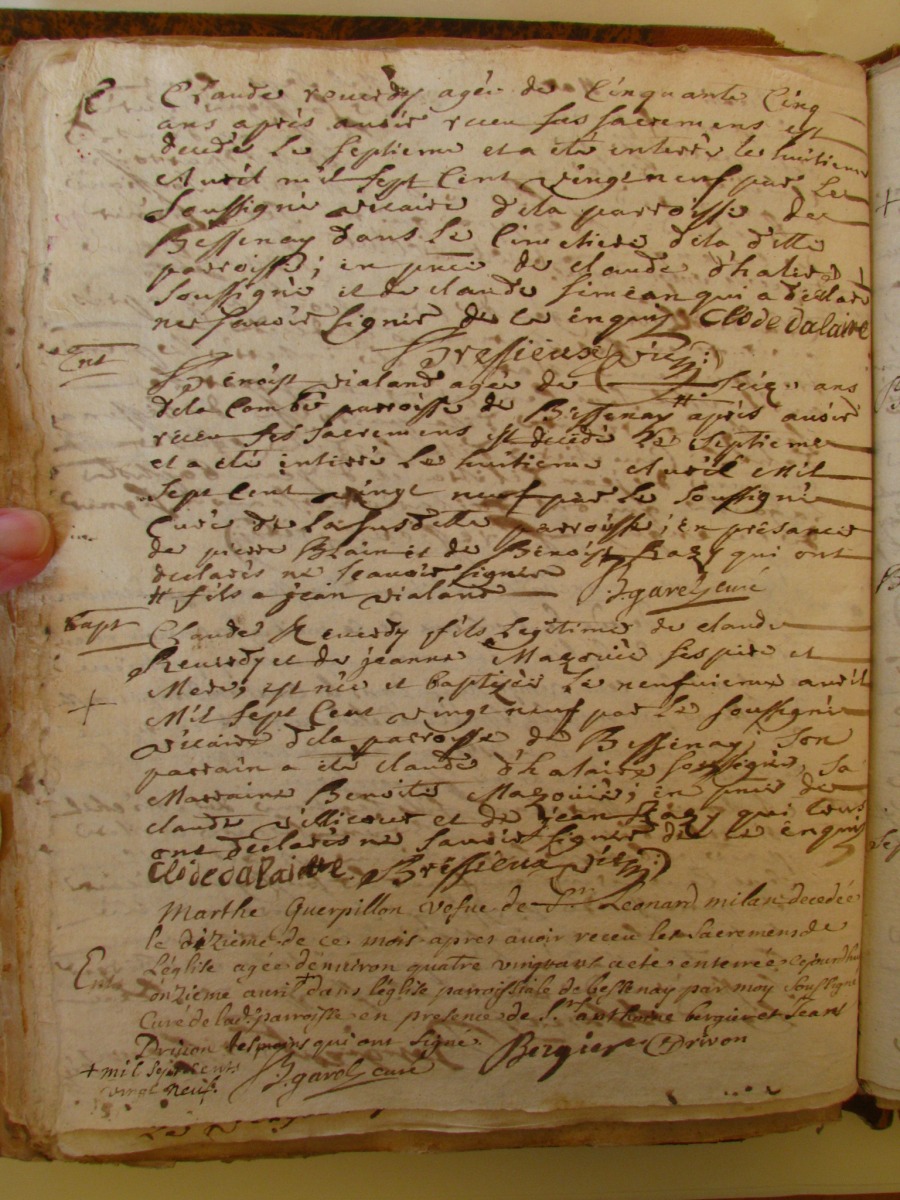 E
Claude reverdy agée de Cinquante Cinq
ans après avoir receu ses sacremens est
decedé Le septieme et a eté enterré le huitieme
Avril mil sept Cent vingt neuf par Le
Soussigné vicaire dela parroisse de
Bessenay dans Le Cimetiere dela ditte
parroisse; en pnce de claude d'halere
soussigné et de claude simean qui a declaré
ne scavoir signer de ce enquis Clode dalaire
Bressieux vic:
Ent
Benoist vialand agée de seize ans
dela Combe parroisse de Bessenay # après avoir
receu ses sacremens est decedé Le septieme
et a eté enterré Le huitieme Avril Mil
sept Cent vingt neuf par Le soussigné
Curé de La susditte parroisse; en présance
de pierre Blain et de Benoist Razy qui ont
declarés ne scavoir signer
# fils a jean vialand J garel curé
Bapt
Claude Reverdy fils Legitime de claude
Reverdy et de jeanne Mazoüié ses pere et
Mere, est née et baptisée Le neufvieme avril
+
Mil sept Cent vingt neuf par Le soussigné
vicaire dela parroisse de Bessenay; son
parrain a eté claude d'halaire soussigné, sa
Marraine Benoite Mazoüié; en pnce de
claude villicour et de jean Razy qui tous
ont declarés ne scavoir signer de ce enquis
Clode dalaire Bressieux vic:
Marthe Guerpillon vefue de Sr Leonard milan decedée
le dizieme de ce mois apres auoir receu les Sacremens de
Ent
L'église agée denuiron quatre vingt ans a ete enterrée cejourdhui
onzieme avril + dans l'église parroissiale de bessenay par moy Soussigné
Curé de lad. parroisse en presence de Sr anthoine bergier et Jean
Drivon tesmoins qui ont signé.
Bergier Drivon
+ mil sept cents
vingt neuf. J garel curé